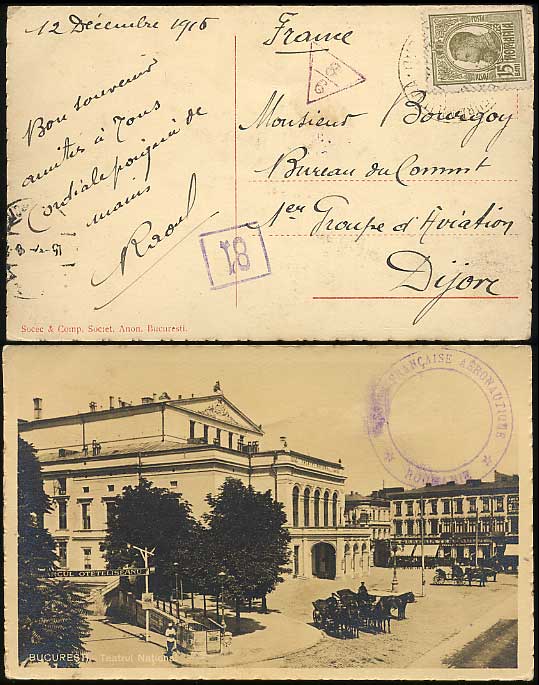 12 Décembre 1916
France
15
BANI
ROMANIA
G 8
Bon souvenir
amitiés à Tous
Cordiale poignée de
mains
Raoul
Monsieur Bourgoy
Bureau du Commt
1er Groupe d'Aviation
Dijon
18
Socec & Comp. Societ. Anon. Bucuresti.
FRANÇAISE AÉRONAUTIQUE
OTETELISEANU
BUCURESTI. Teatrul Naţional